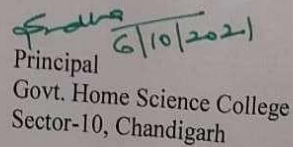 6/10/2021
Principal
Govt. Home Science College
Sector-10, Chandigarh